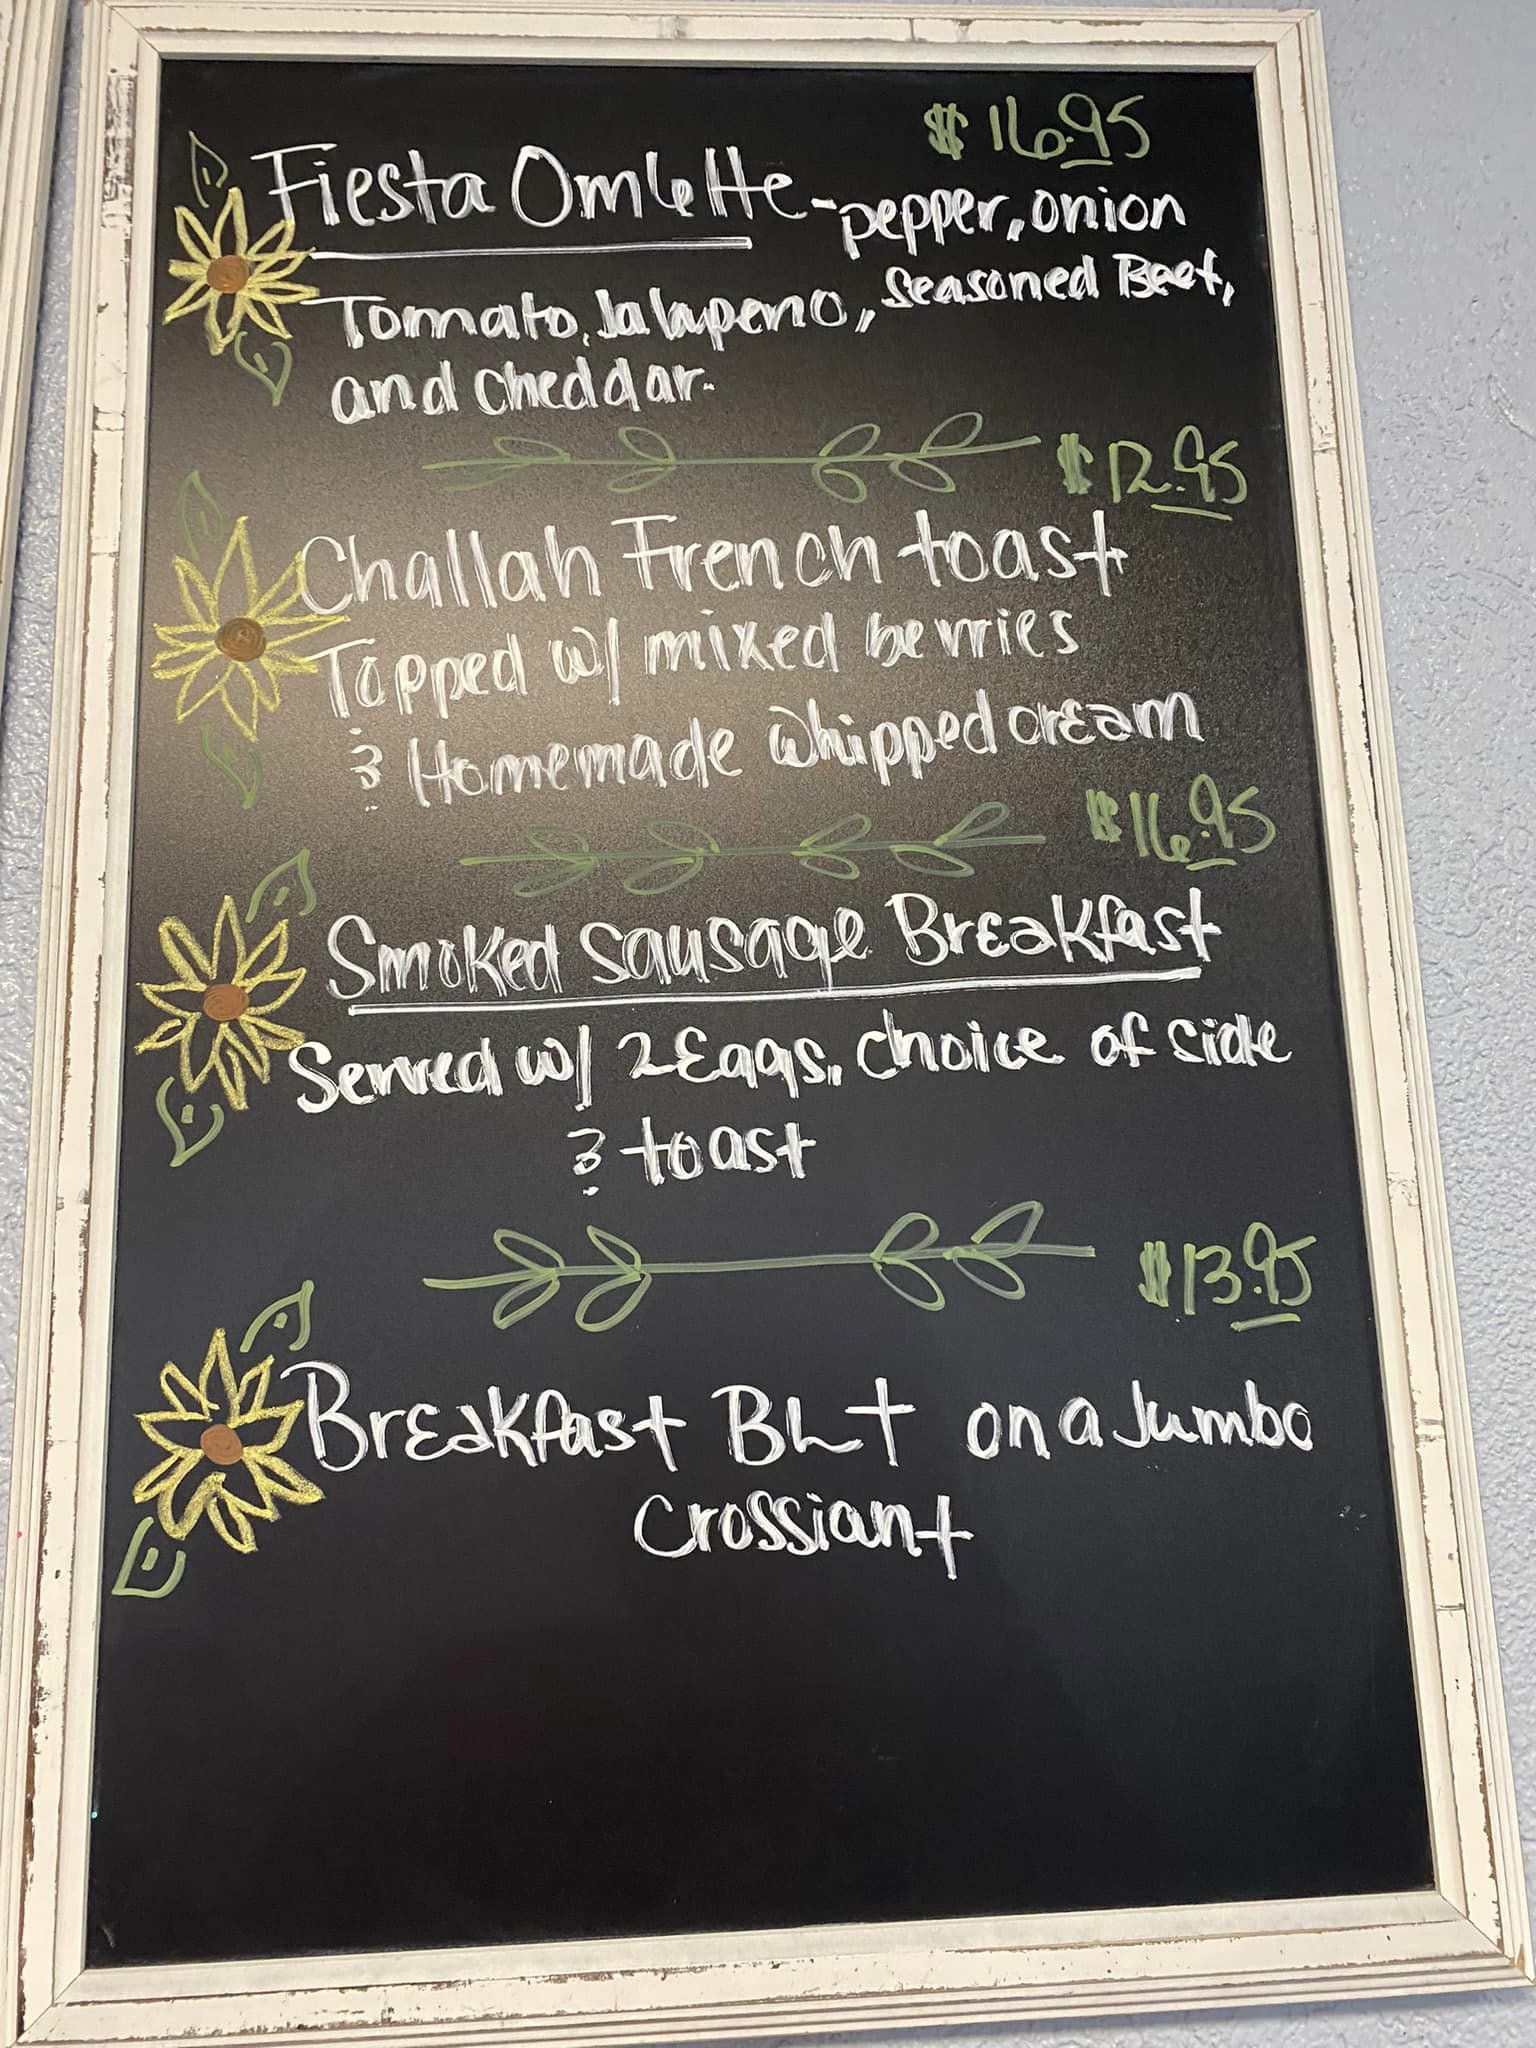 $16.95
Fiesta Omlette - pepper, onion
Tomato, Jalapeno, Seasoned Beef,
and cheddar.
$12.95
Challah French toast
Topped w/ mixed berries
& Homemade whipped cream
$16.95
Smoked Sausage Breakfast
Served w/ 2 Eggs, choice of side
& toast
$13.95
Breakfast BLT on a Jumbo
Crossiant